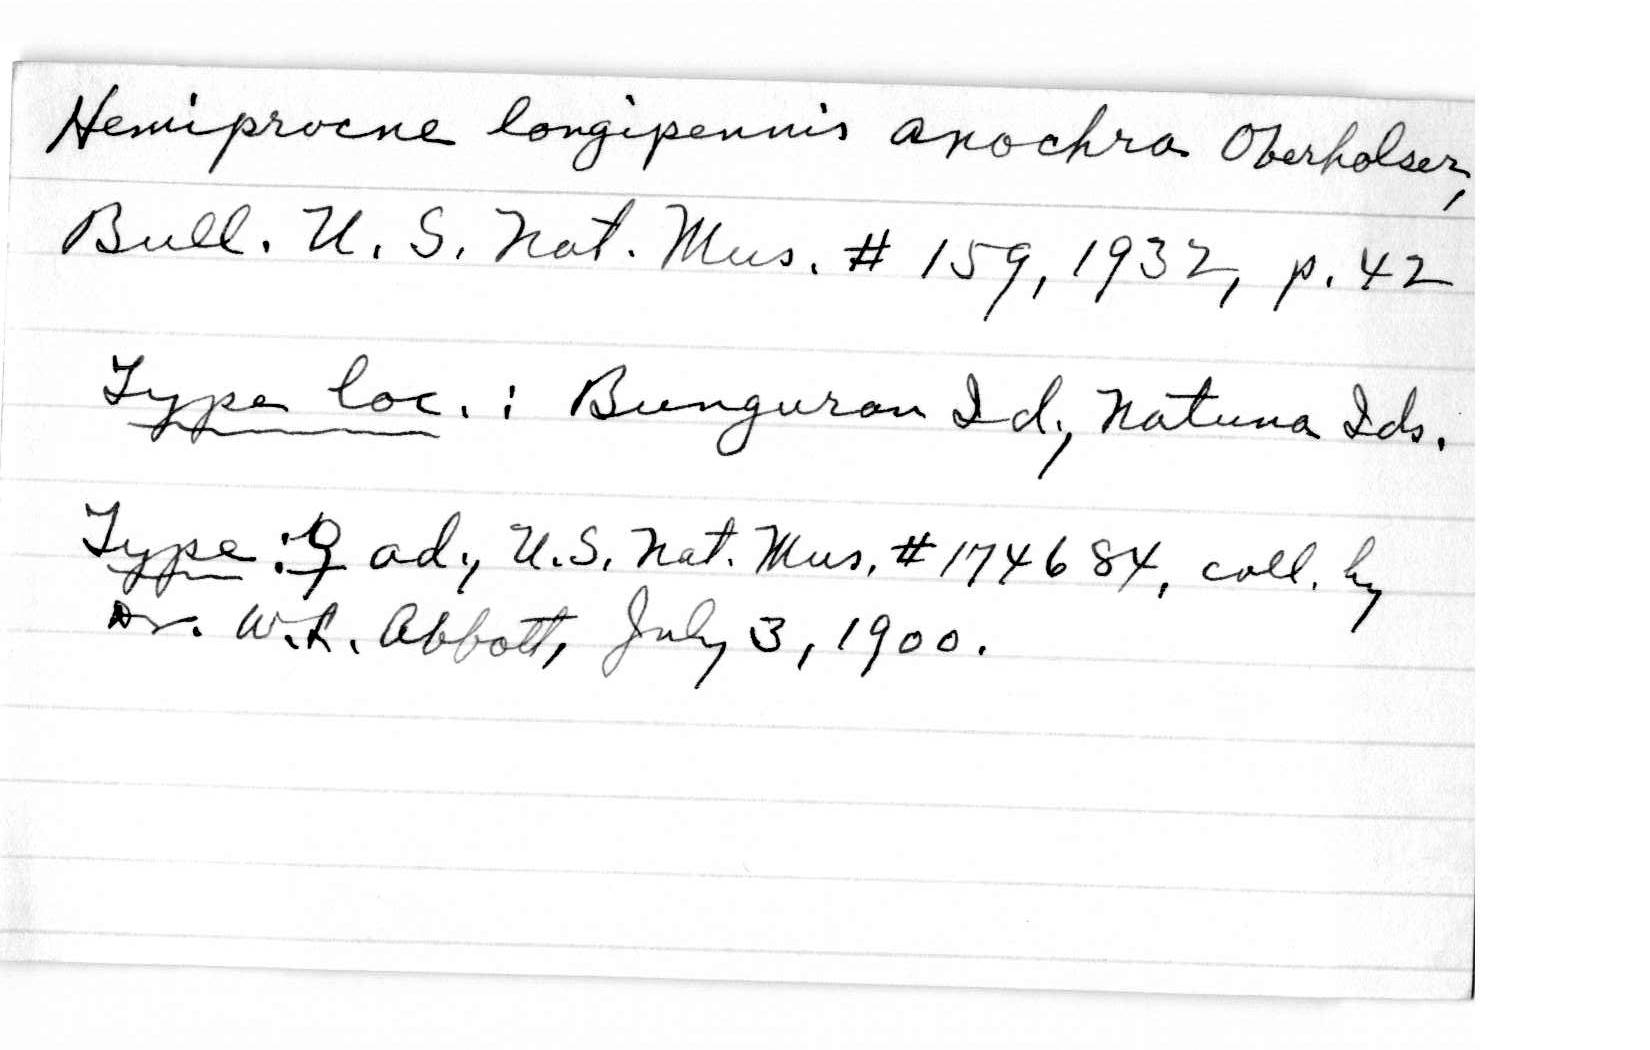 Hemiprocne longipennis anochra Oberholser,
Bull. U. S. Nat. Mus. # 159, 1932, p. 42
Type loc. : Bunguran Id., Natuna Ids.
Type : ♀ ad., U.S. Nat. Mus. # 174684, coll. by
Dr. W.L. Abbott, July 3, 1900.